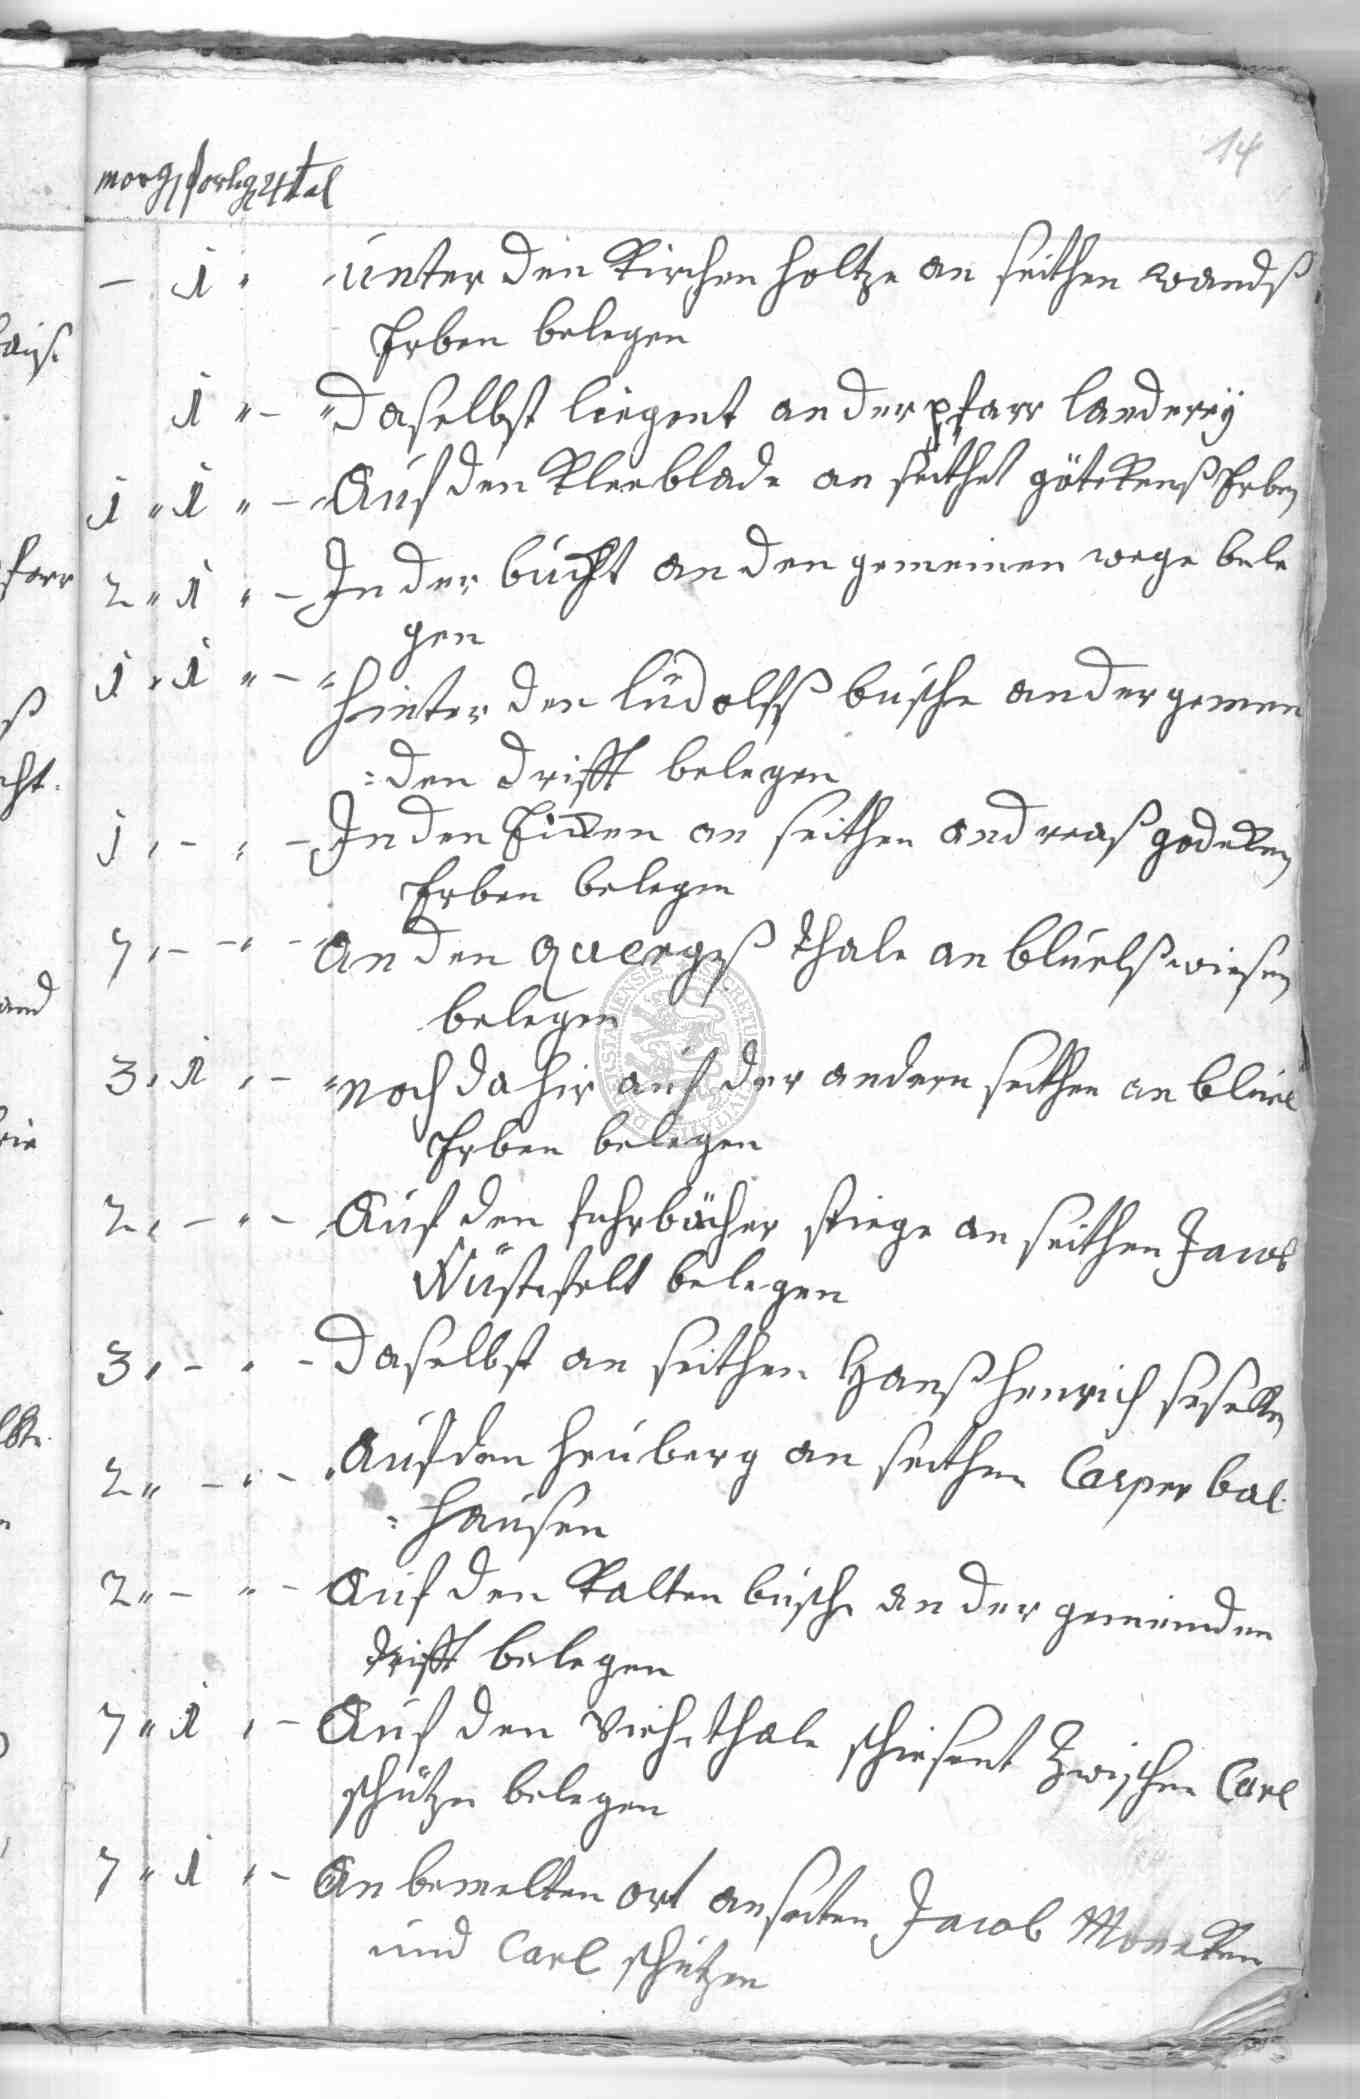 14
morg forlg 4tel
- 1 " unter den Kirchen holtze an seithen wandß
Erben belegen
1 " - " Daselbst liegent an der pfarr Länderey
1 " 1 " - Auf den Kleeblade an seithet götekenß Erben
2 " 1 " - In der bucht an den gemeinen wege bele
gen
1 " 1 " - " hinter den lüdolfß busche an der gemein
= den drifft belegen
1 " - " - In den seithen andreaß godeken
Erben belegen
7 " - " - an den quergeß thale an bluelß wiesen
belegen
3 " 1 " - " noch da hir auf der andern seithen an bluel
Erben belegen
2 " - " - Auf den fuhrbächer stiege an seithen Jacob
Wüstefelt belegen
3 " - " - Daselbst an seithen Hanß henrich
2 " - " - " Auf den heuberg an seithen Casper bal
= hausen
2 " - " - Auf den Kalten busche an der gemeinden
drifft belegen
7 " 1 " - Auf den Viehethale schiesent zwischen Carl
schützen belegen
7 " 1 " - An bemelten ort an seiten Jacob
und Carl schützen